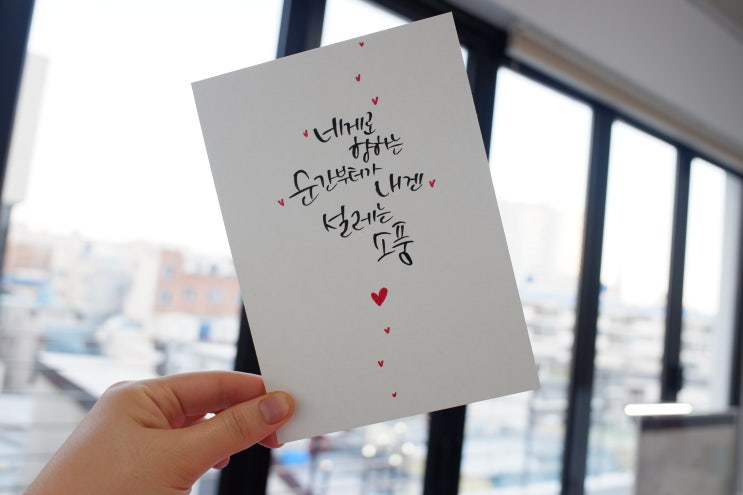 네게로
향하는
순간부터가 내겐
설레는
소풍